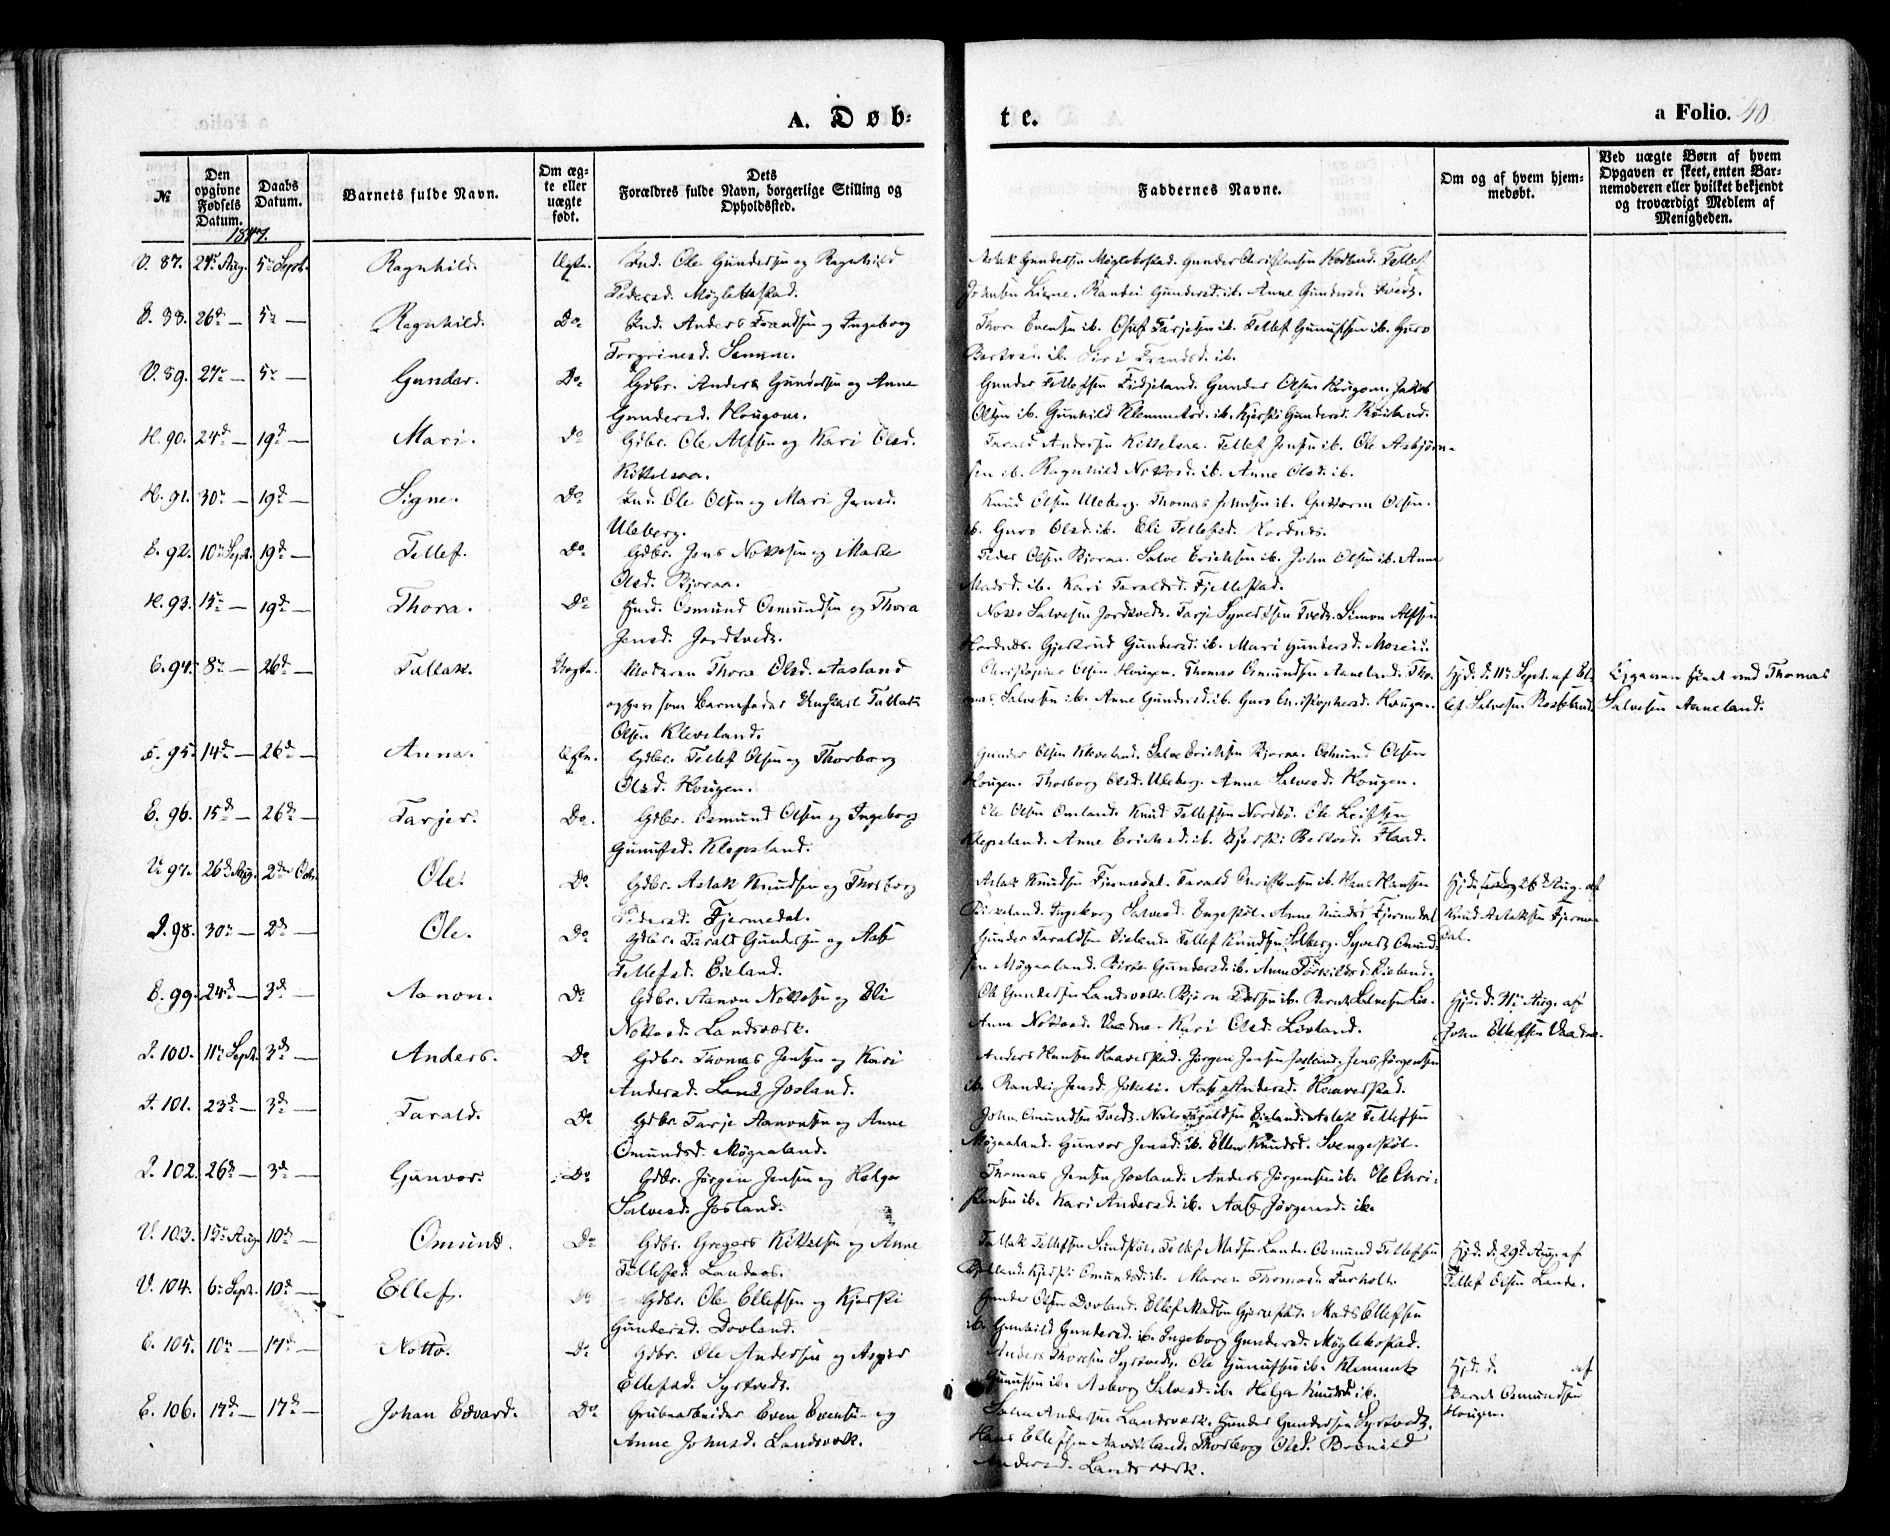 A. Døb-
te.
a Folio. 40
№
Den opgivne Fødsels Datum.
Daabs Datum.
Barnets fulde Navn.
Om ægte eller uægte født.
Dets Forældres fulde Navn, borgerlige Stilling og Opholdssted.
Faddernes Navne.
Om og af hvem hjemmedøbt.
Ved uægte Børn af hvem Opgaven er skeet, enten Barnemoderen eller hvilket bekjendt og troværdigt Medlem af Menigheden.
1847.
V. 87. 24de Aug. 5te Sept. Ragnhild. Ægte. Ind. Ole Gundersen og Ragnhild
Pedersd. Møglebostad.
Aslak Gundersen Møglebostad. Gunder Christensen Rodland. Tellef
Johnsen Ligne. Randei Gundersd. ib. Anne Gundersd. Tveit.
88. 26de — 5te — Ragnhild. Do Ind. Anders Frandsen og Ingeborg
Torgrimsd. Senum.
Thore Evensen ib. Oluf Tarjesen ib. Tellef Gunufsen ib. Guro
ib. Siri Frandsd. ib.
V. 89. 27de — 5te — Gunder. Do Gdbr. Anders Gundersen og Anne
Gundersd. Hougom.
Gunder Tellefsen Fidjeland. Gunder Olsen Hougom. Jakob
Olsen ib. Gunhild Klemmetsd. ib. Kjersti Gundersd. Røiland.
H. 90. 24de — 19de — Mari. Do Gdbr. Ole Alfsen og Kari Olsd.
Kittelsaa.
Tarald Andersen Kittelsaa. Tellef Jensen ib. Ole Asbjørn-
sen ib. Ragnhild Nottosd. ib. Anne Olsd. ib.
H. 91. 30te — 19de — Signe. Do Ind. Ole Olsen og Mari Jensd.
Uleberg.
Knud Olsen Uleberg. Thomas Johnsen ib. Guttorm Olsen
ib. Guro Olsd. ib. Eli Tellefsd. Hordnes.
E. 92. 10de Sept. 19de — Tellef. Do Gdbr. Jens Nottosen og Marte
Olsd. Bjoraa.
Peder Olsen Bjoraa. Salve Erichsen ib. John Olsen ib. Anne
Madsd. ib. Kari Taraldsd. Fjellestad.
H. 93. 15de — 19de — Thora. Do Ind. Osmund Osmundsen og Thora
Jensd. Jordtveds.
Notto Salvesen Jordtvedt. Tarje Syvertsen Tvedt. Simon Alfsen
Hordnes. Gjertrud Gundersd. ib. Mari Gundersd. Moseid.
E. 94. 8de — 26de — Tallak. Uægte. Moderen Thora Olsd. Aasland
opgav som Barnefader Ungkarl Tallak
Olsen Kleveland.
Christopher Olsen Hougen. Thomas Osmundsen Aaneland. Tho-
mas Salvesen ib. Anne Gundersd. ib. Guro Christophersd. Hougen.
Hjd. d. 11te Sept. af El-
lef Salvesen
Opgaven skeet ved Thomas
Salvesen Aaneland.
E. 95. 14de — 26de — Anna. Ægte. Gdbr. Tellef Olsen og Thorborg
Olsd. Hougen.
Gunder Olsen Kleveland. Salve Erichsen Bjoraa. Osmund Olsen
Hougen. Thorborg Olsd. Uleberg. Anne Salvesd. Hougen.
E. 96. 15de — 26de — Tarjer. Do. Gdbr. Osmund Olsen og Ingeborg
Gunufsd. Klepsland.
Ole Olsen Omland. Knud Tellefsen Nordbø. Ole Leifssen
Klepsland. Anne Erichsd. ib. Kjersti Flaad.
V. 97. 26de Aug. 2den Oct. Ole. Do Gdbr. Aslak Knudsen og Thorborg
Pedersd. Fjermedal.
Aslak Knudsen Fjermedal. Tarald Christensen ib. Hans Hansen
Birkeland. Ingeborg Salvesd. Engestøl. Anne Knudsd. Fjermedal.
Hjd. 26de Aug. af
Knud Aslaksen Fjerme-
dal.
I. 98. 30te — 2de — Ole. Do Gdbr. Tarald Gundersen og Aase
Tellefsd. Eieland.
Gunder Taraldsen Eieland. Tellef Knudsen Solberg. Syvert Omund-
sen Møgaaland. Birte Gundersd. ib. Anne Torkildsd. Eieland.
E. 99. 24de — 3de — Aanon. Do Gdbr. Aanon Nottosen og Eli
Nottosd. Landsværk.
Ole Gundersen Landsværk. Bjørn ib. Bernt Salvesen
Anne Nottosd. Vaadne. Kari Olsd. Lisland.
Hjd. d. 31te Aug. af
John Ellefsen Vaadne.
I. 100. 11te Sept. 3de — Anders. Do Gdbr. Thomas Jensen og Kari
Andersd. Land Josland.
Anders Hansen Haavestad. Jørgen Jensen Josland. Jens Jørgensen
ib. Randei Jensd. Aase Andersd. Haavestad.
I. 101. 23de — 3de — Tarald. Do Gdbr. Tarje Aanonsen og Anne
Omundsd. Møgaaland.
John Omundsen Tvedt. Niels Taraldsen Eieland. Aslak Tellefsen
Møgaaland. Gunvor Jensd. ib. Ellen Knudsd. Svengestøl.
I. 102. 26de — 3de — Gunvor. Do Gdbr. Jørgen Jensen og Helge
Salvesd. Josland.
Thomas Jensen Josland. Anders Jørgensen ib. Ole Chri-
stensen ib. Kari Andersd. ib. Aase Jørgensd. ib.
V. 103. 15de Aug. 10de — Omund. Do Gdbr. Gregers Kittelsen og Anne
Tellefsd. Landaas.
Tallak Tellefsen Sundstøl. Tellef Madsen Lande. Osmund Tellefsen
Kjersti Omundsd. ib. Maren Thomasd. Furholt.
Hjd. d. 29de Aug. af
Tellef Olsen Lande.
V. 104. 6te Sept. 10de — Ellef. Do Gdbr. Ole Ellefsen og Kjersti
Gundersd. Dovland.
Gunder Olsen Dovland. Ellef Madsen Gjerrestad. Mads Ellefsen
ib. Gunhild Gundersd. ib. Ingeborg Gundersd. Møglebostad.
E. 105. 10de — 17de — Notto. Do Gdbr. Ole Andersen og Asper
Ellefsd. Syrtveds.
Anders Thoresen Syrtvedt. Ole Gunufsen ib. Klemmet
Gunufsen ib. Asborg Salvesd. ib. Helga Knudsd. ib.
Hjd. d. af
Bernt Osmundsen
Hougen.
E. 106. 17de — 17de — Johan Edvard. Do Grubearbeider Even Evensen og
Anne Johnsd. Landsværk.
John Andersen Landsværk. Gunder Gundersen Syrtvedt.
Hans Ellefsen Aavitsland. Thorborg Olsd.
Andersd. Landsværk.